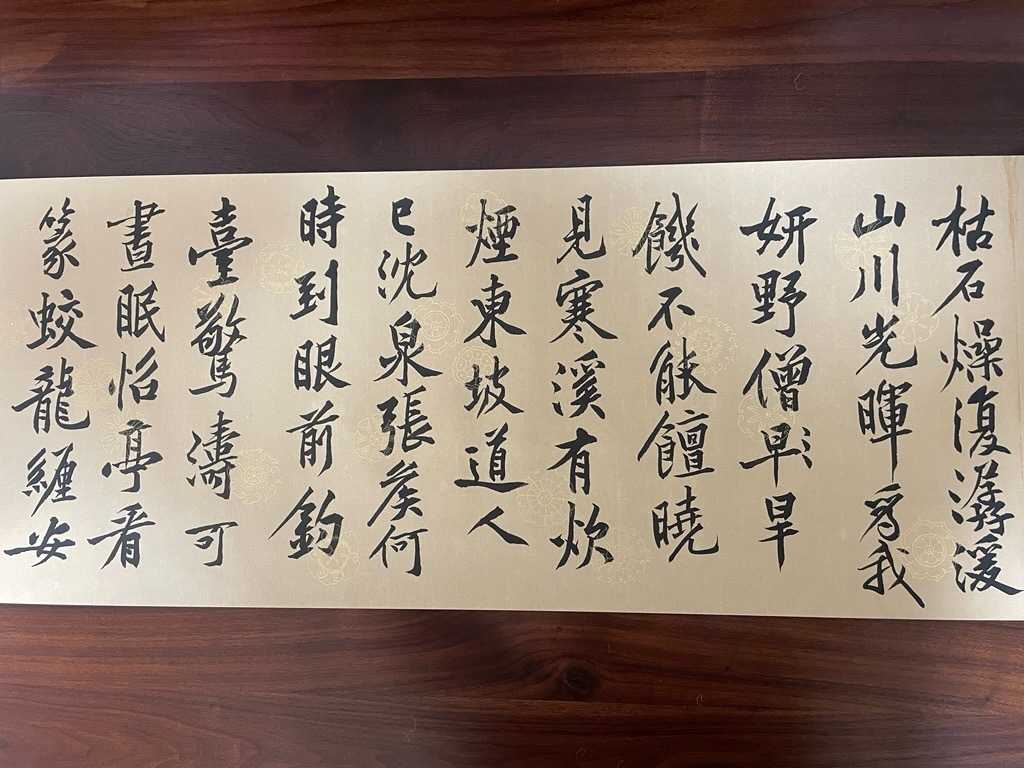 枯石燥復潺湲
山川光暉爲我
妍野僧早旱
饑不能饘曉
見寒溪有炊
煙東坡道人
已沈泉張矦何
時到眼前釣
臺驚濤可
晝眠怡亭看
篆蛟龍纏安